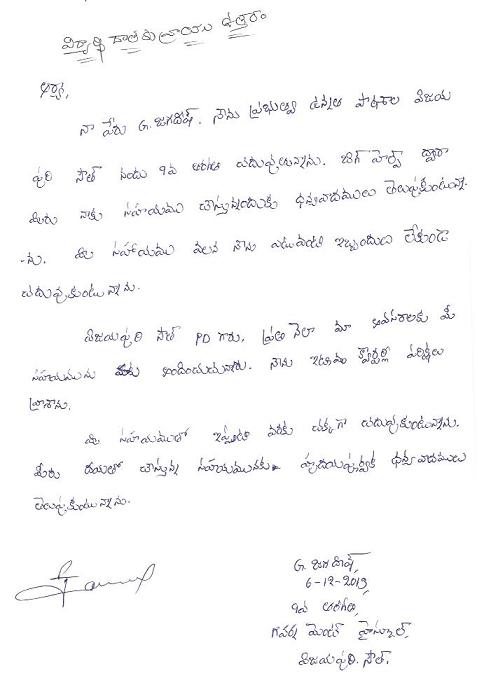 విద్యార్థి దాతకు వ్రాయు ఉత్తరం
అయ్యా,
నా పేరు G. జగదీష్. నేను ప్రభుత్వ ఉన్నత పాఠశాల విజయ
పురి సౌత్ నందు 9వ తరగతి చదువుతున్నాను. బిగ్ హెల్ప్ ద్వారా
మీరు నాకు సహయము చేస్తున్నందుకు ధన్యవాదములు తెలుపుకుంటున్నా
-ను. ఈ సహాయము వలన నేను ఎటువంటి ఇబ్బందులు లేకుండా
చదువుకుంటున్నాను.
విజయపురి సౌత్ PD గారు, ప్రతి నెలా మా అవసరాలకు మీ
సహయమును అందించుచున్నారు. నేను ఇటీవల క్వార్టర్లీ పరీక్షలు
వ్రాశాను.
ఈ సహయముతో ఇప్పటి వరకు చక్కగా చదువుకుంటున్నాను.
మీరు దయతో చేస్తున్న సహయమునకు హృదయపూర్వక ధన్యవాదములు
తెలుపుకుంటున్నాను.
G. జగదీష్,
6-12-2013,
9వ తరగతి,
గవర్న మెంట్ హైస్కూల్,
విజయపురి. సౌత్.